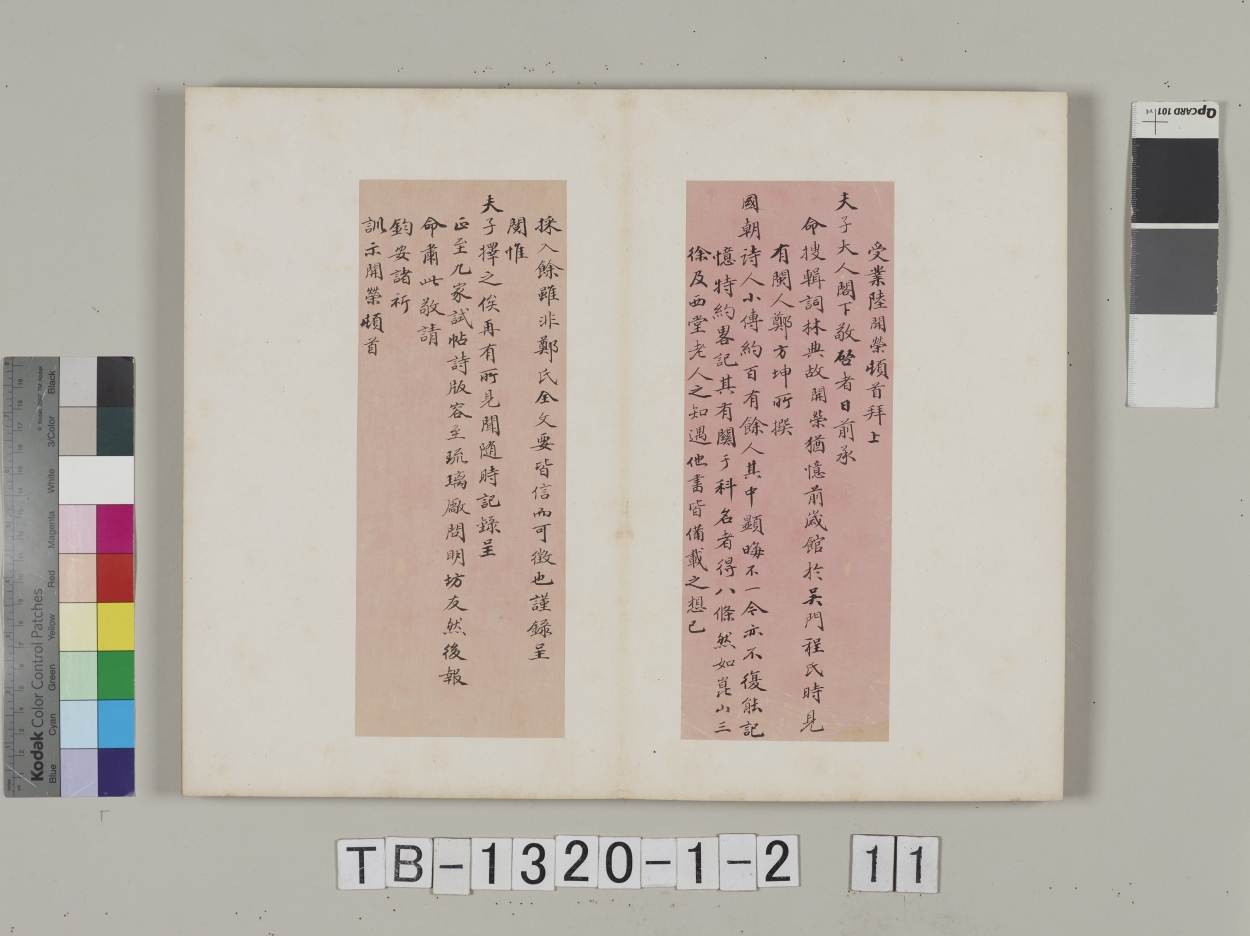 受業陸開榮頓首拜上
夫子大人閣下敬啓者日前承
命搜輯詞林典故開榮猶憶前歲館於吳門程氏時見
有閩人鄭方坤所撰
國朝诗人小傳約百有餘人其中顯晦不一今亦不復能記
憶特約畧記其有關于科名者得八條然如崑山三
徐及西堂老人之知遇他書皆備載之想已
採入餘雖非鄭氏全文要皆信而可徵也謹錄呈
閱惟
夫子擇之俟再有所見聞随時記錄呈
正至九家試帖詩版容至琉璃厰問明坊友然後報
命肅此敬請
鈞安諸祈
訓示開榮頓首
Kodak Color Control Patches
Blue Cyan Green Yellow Red Magenta White 3/Color Black
QPCARD 101
TB-1320-1-2 11